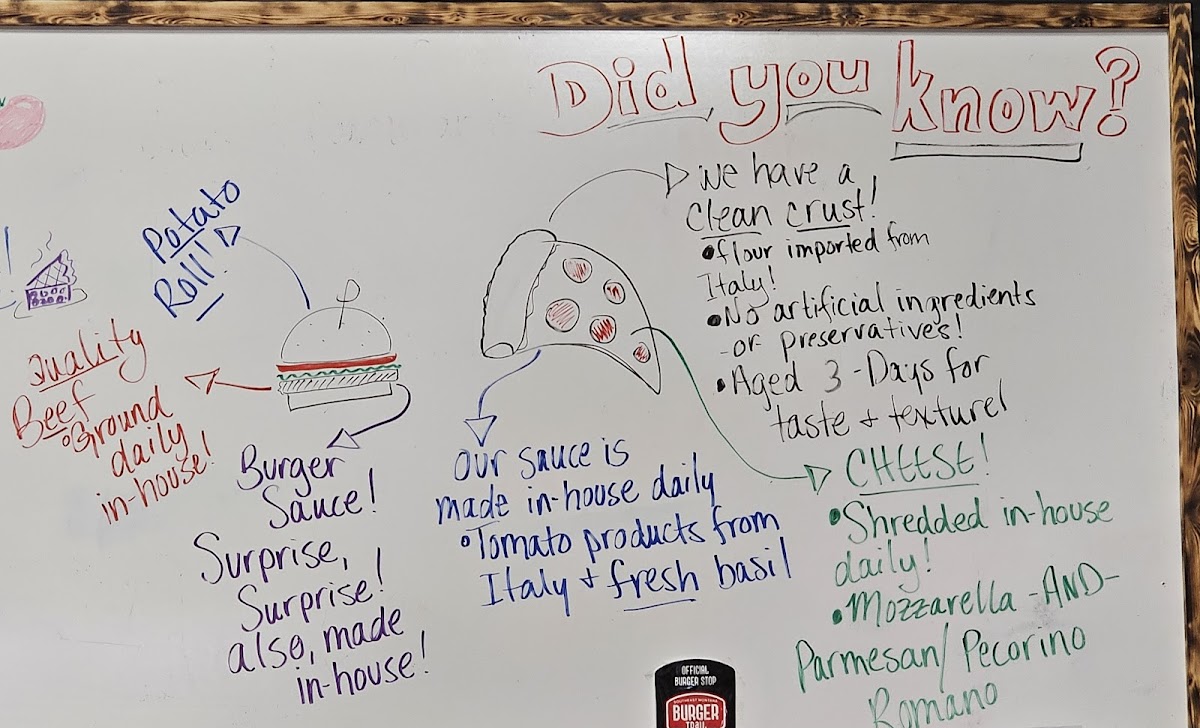 Did you know?
We have a
clean crust!
•flour imported from
Italy!
•No artificial ingredients
-or preservatives!
•Aged 3-Days for
taste + texture!
CHEESE!
•Shredded in-house
daily!
•Mozzarella -AND-
Parmesan/Pecorino
Romano
Our sauce is
made in-house daily
•Tomato products from
Italy + fresh basil
Potato
Roll!
Quality
Beef
•Ground
daily
in-house!
Burger
Sauce!
Surprise,
Surprise!
also, made
in-house!
OFFICIAL
BURGER STOP
SOUTHEAST MONTANA
BURGER
TRAIL